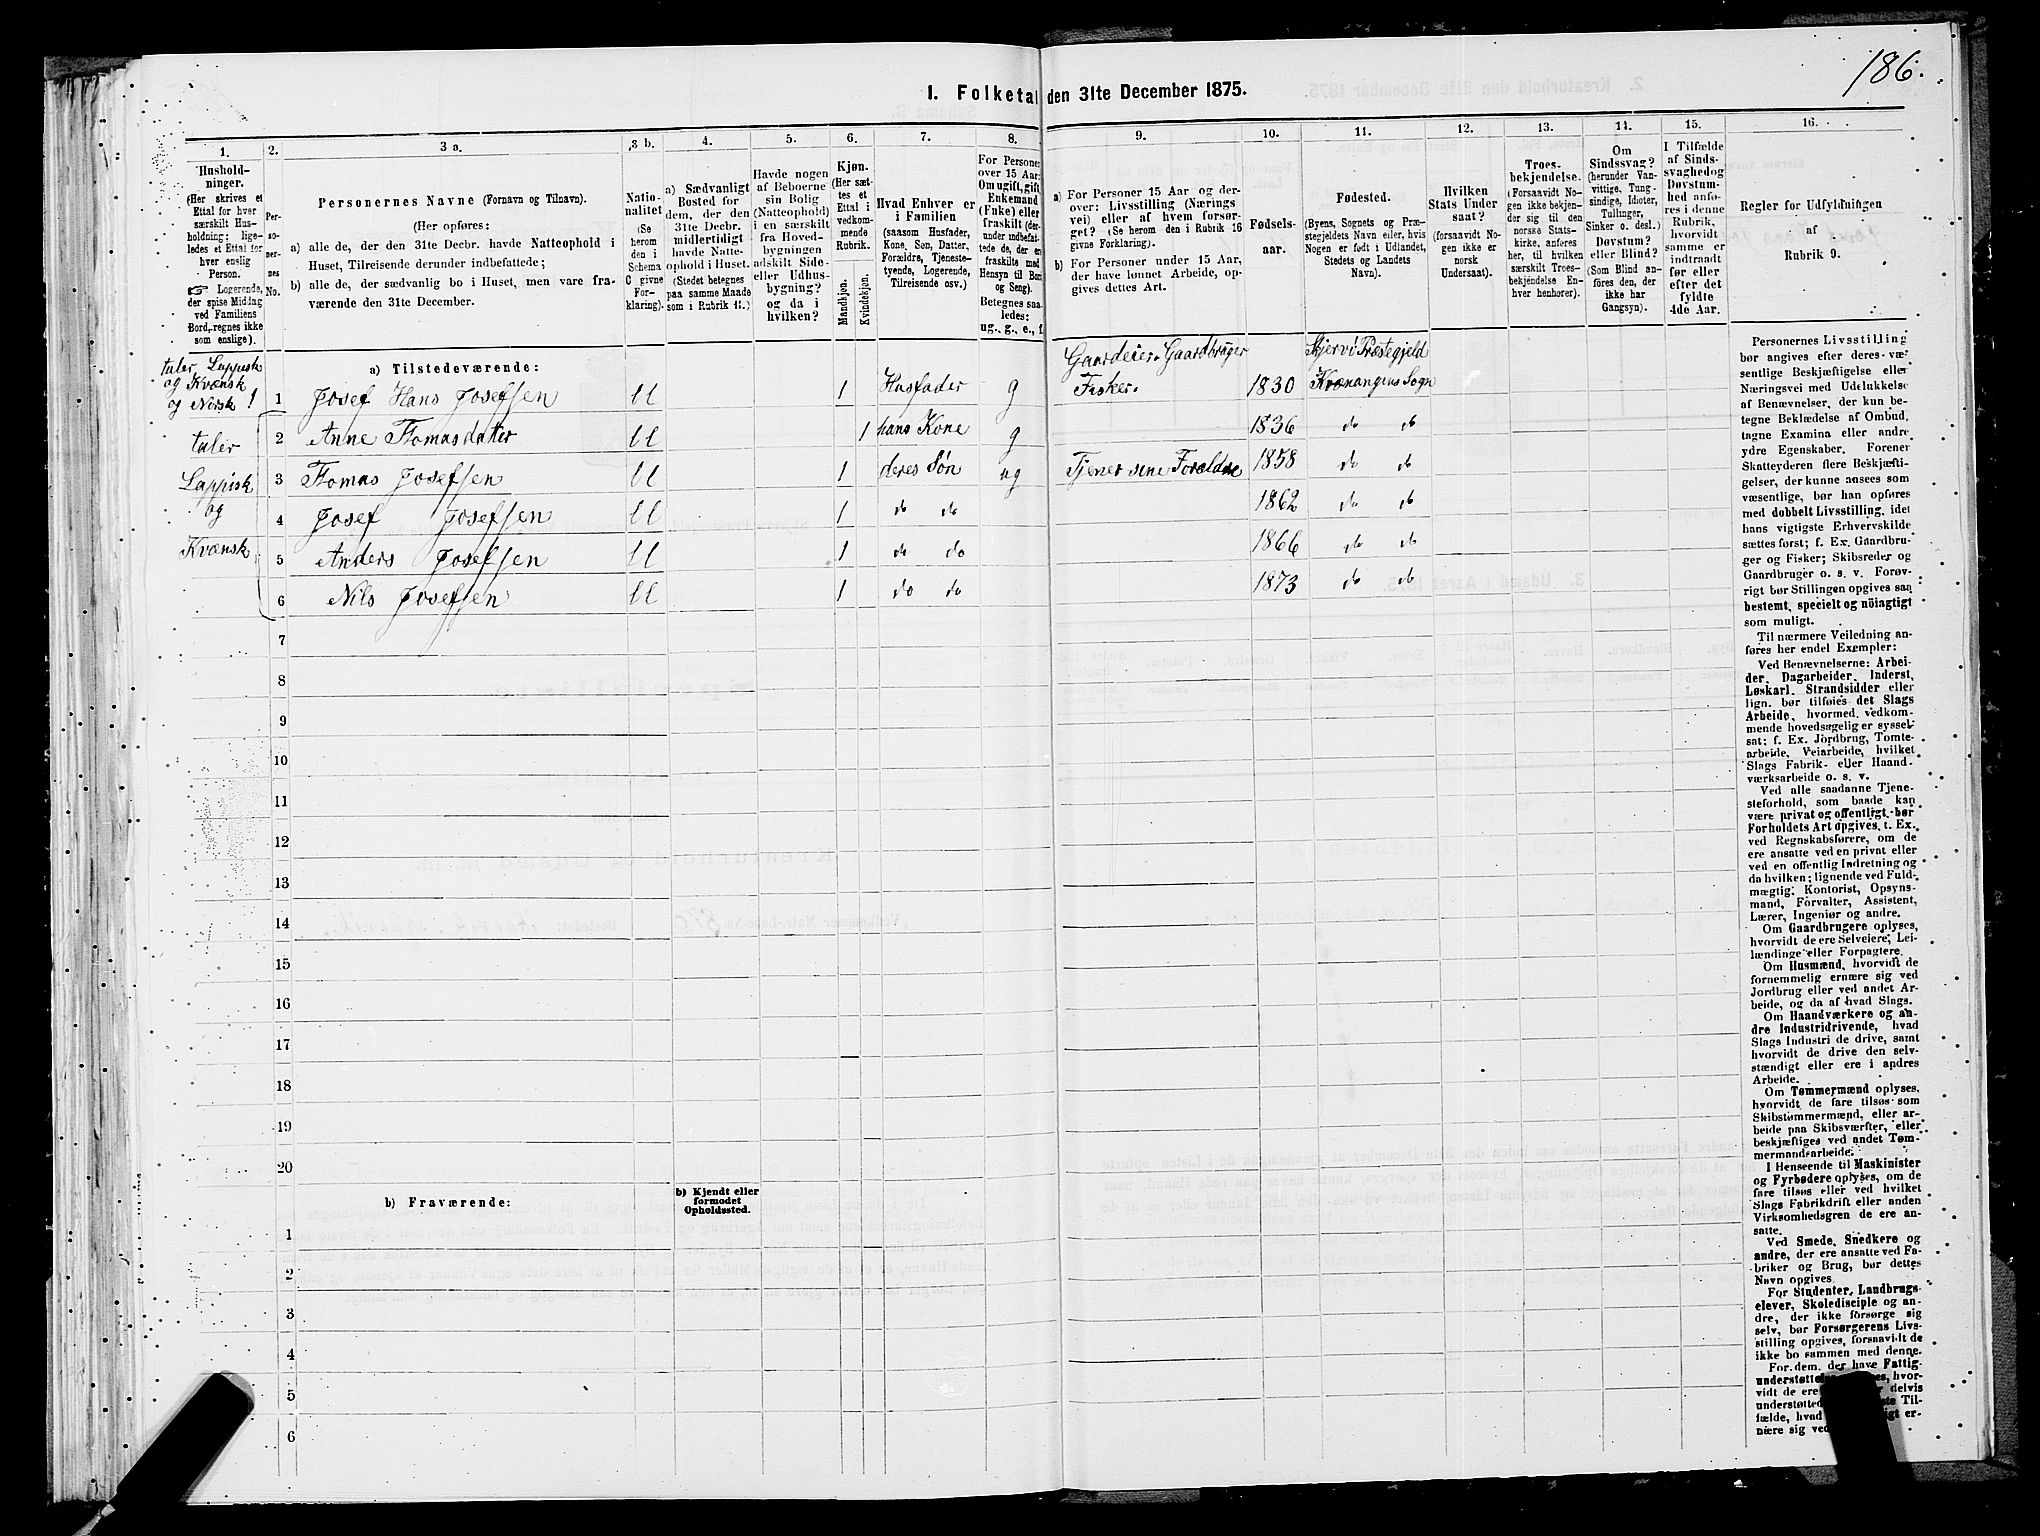 186.
I. Folketal den 31te December 1875.
1.
2.
3 a.
3 b.
4.
5.
6.
7.
8.
9.
10.
11.
12.
13.
14.
15.
16.
Hushold-
ninger.
(Her skrives et
Ettal for hver
særskilt Hus-
holdning; lige-
ledes et Ettal for
hver enslig
Person.
Logerende,
der spise Middag
ved Familiens
Bord, regnes ikke
som enslige).
Per-
so-
ner-
nes
No.
Personernes Navne (Fornavn og Tilnavn).
(Her opføres:
a) alle de, der den 31te Decbr. havde Natteophold i
Huset, Tilreisende derunder indbefattede;
b) alle de, der sædvanlig bo i Huset, men vare fra-
værende den 31te December.
Natio-
nalitet
(Se
herom
den i
Schema
C givne
For-
klaring).
a) Sædvanligt
Bosted for
dem, der den
31te Decbr.
midlertidigt
havde Natte-
ophold i Huset.
(Stedet betegnes
paa samme Maade
som i Rubrik 11.)
Havde nogen
af Beboerne
sin Bolig
(Natteophold)
i en særskilt
fra Hoved-
bygningen
adskilt Side-
eller Udhus-
bygning?
og da i
hvilken?
Kjøn.
(Her sæt-
tes et
Ettal i
vedkom-
mende
Rubrik.
Mandkjøn.
Kvindekjøn.
Hvad Enhver er
i Familien
(saasom Husfader,
Kone, Søn, Datter,
Forældre, Tjeneste-
tyende, Logerende,
Tilreisende osv.)
For Personer
over 15 Aar:
Om ugift, gift,
Enkemand
(Enke) eller
fraskilt (der-
under indbefat-
tede de, der ere
fraskilte med
Hensyn til Bord
og Seng).
Betegnes saa-
ledes:
ug., g., e., f.
a) For Personer 15 Aar og der-
over: Livsstilling (Nærings-
vei) eller af hvem forsør-
get? (Se herom den i Rubrik 16
givne Forklaring).
b) For Personer under 15 Aar,
der have lønnet Arbeide, op-
gives dettes Art.
Fødsels-
aar.
Fødested.
(Byens, Sognets og Præ-
stegjeldets Navn eller, hvis
Nogen er født i Udlandet,
Stedets og Landets
Navn).
Hvilken
Stats Under-
saat?
(forsaavidt No-
gen ikke er
norsk
Undersaat).
Troes-
bekjendelse.
(Forsaavidt No-
gen ikke bekjen-
der sig til den
norske Stats-
kirke, anføres
her, til hvilken
særskilt Troes-
bekjendelse En-
hver henhører).
Om
Sindssvag?
(herunder Van-
vittige, Tung-
sindige, Idioter,
Tullinger,
Sinker o. desl.)
Døvstum?
eller Blind?
(Som Blind an-
føres den, der
ikke har
Gangsyn).
I Tilfælde
af Sinds-
svaghed og
Døvstum-
hed anfø-
res i denne
Rubrik,
hvorvidt
samme er
indtraadt
før eller
efter det
fyldte
4de Aar.
Regler for Udfyldningen
af
Rubrik 9.
taler Lappisk
og Kvænsk
og Norsk 1
a) Tilstedeværende:
1 Josef Hans Josefsen U 1 Husfader g Gaardeier. Gaardbruger Fisker. 1830 Skjervö Præstegjeld Kvænangens Sogn
taler
2 Anne Thomasdatter U 1 hans Kone g 1836 do do
Lappisk
3 Thomas Josefsen U 1 deres Søn ug Tjener sine Forældre 1858 do do
og
4 Josef Josefsen U 1 do do 1862 do do
Kvænsk
5 Anders Josefsen U 1 do do 1866 do do
6 Nils Josefsen U 1 do do 1873 do do
7
8
9
10
11
12
13
14
15
16
17
18
19
20
b) Fraværende:
b) Kjendt eller
formodet
Opholdssted.
1
2
3
4
5
6
Personernes Livsstilling
bør angives efter deres væ-
sentlige Beskjæftigelse eller
Næringsvei med Udelukkelse
af Benævnelser, der kun be-
tegne Beklædelse af Ombud,
tagne Examina eller andre
ydre Egenskaber. Forener
Skatteyderen flere Beskjæfti-
gelser, der kunne ansees som
væsentlige, bør han opføres
med dobbelt Livsstilling, idet
hans vigtigste Erhvervskilde
sættes først; f. Ex. Gaardbru-
ger og Fisker; Skibsreder og
Gaardbruger o. s. v. Forøv-
rigt bør Stillingen opgives saa
bestemt, specielt og nöiagtigt
som muligt.
Til nærmere Veiledning an-
føres her endel Exempler:
Ved Benævnelserne: Arbei-
der, Dagarbeider, Inderst,
Løskarl, Strandsidder eller
lign. bør tilføies det Slags
Arbeide, hvormed vedkom-
mende hovedsagelig er syssel-
sat; f. Ex. Jordbrug, Tomte-
arbeide, Veiarbeide, hvilket
Slags Fabrik- eller Haand-
værksarbeide o. s. v.
Ved alle saadanne Tjene-
steforhold, som baade kan
være privat og offentligt, bør
Forholdets Art opgives, t. Ex.
ved Regnskabsførere, om de
ere ansatte ved en privat eller
ved en offentlig Indretning og
da hvilken; lignende ved Fuld-
mægtig, Kontorist, Opsyns-
mand, Forvalter, Assistent,
Lærer, Ingeniør og andre.
Om Gaardbrugere oplyses,
hvorvidt de ere Selveiere, Lei-
lændinge eller Forpagtere.
Om Husmænd, hvorvidt de
fornemmelig ernære sig ved
Jordbrug eller ved andet Ar-
beide, og da af hvad Slags.
Om Haandværkere og an-
dre Industridrivende, hvad
Slags Industri de drive, samt
hvorvidt de drive den selv-
stændigt eller ere i andres
Arbeide.
Om Tømmermænd oplyses,
hvorvidt de fare tilsøs som
Skibstømmermænd, eller ar-
beide paa Skibsværfter, eller
beskjæftiges ved andet Tøm-
mermandsarbeide.
I Henseende til Maskinister
og Fyrbødere oplyses, om de
fare tilsøs eller ved hvilket
Slags Fabrikdrift eller anden
Virksomhedsgren de ere an-
satte.
Ved Smede, Snedkere og
andre, der ere ansatte ved Fa-
briker og Brug, bør dettes
Navn opgives.
For Studenter, Landbrugs-
elever, Skoledisciple og an-
dre, der ikke forsørge sig
selv, bør Forsørgerens Livs-
stilling opgives, forsaavidt de
ikke bo sammen med denne.
For dem, der have Fattig-
understøttelse, hvor-
vidt de ere delvis
understøttede Til-
fælde, hvad er-
nære sig ved